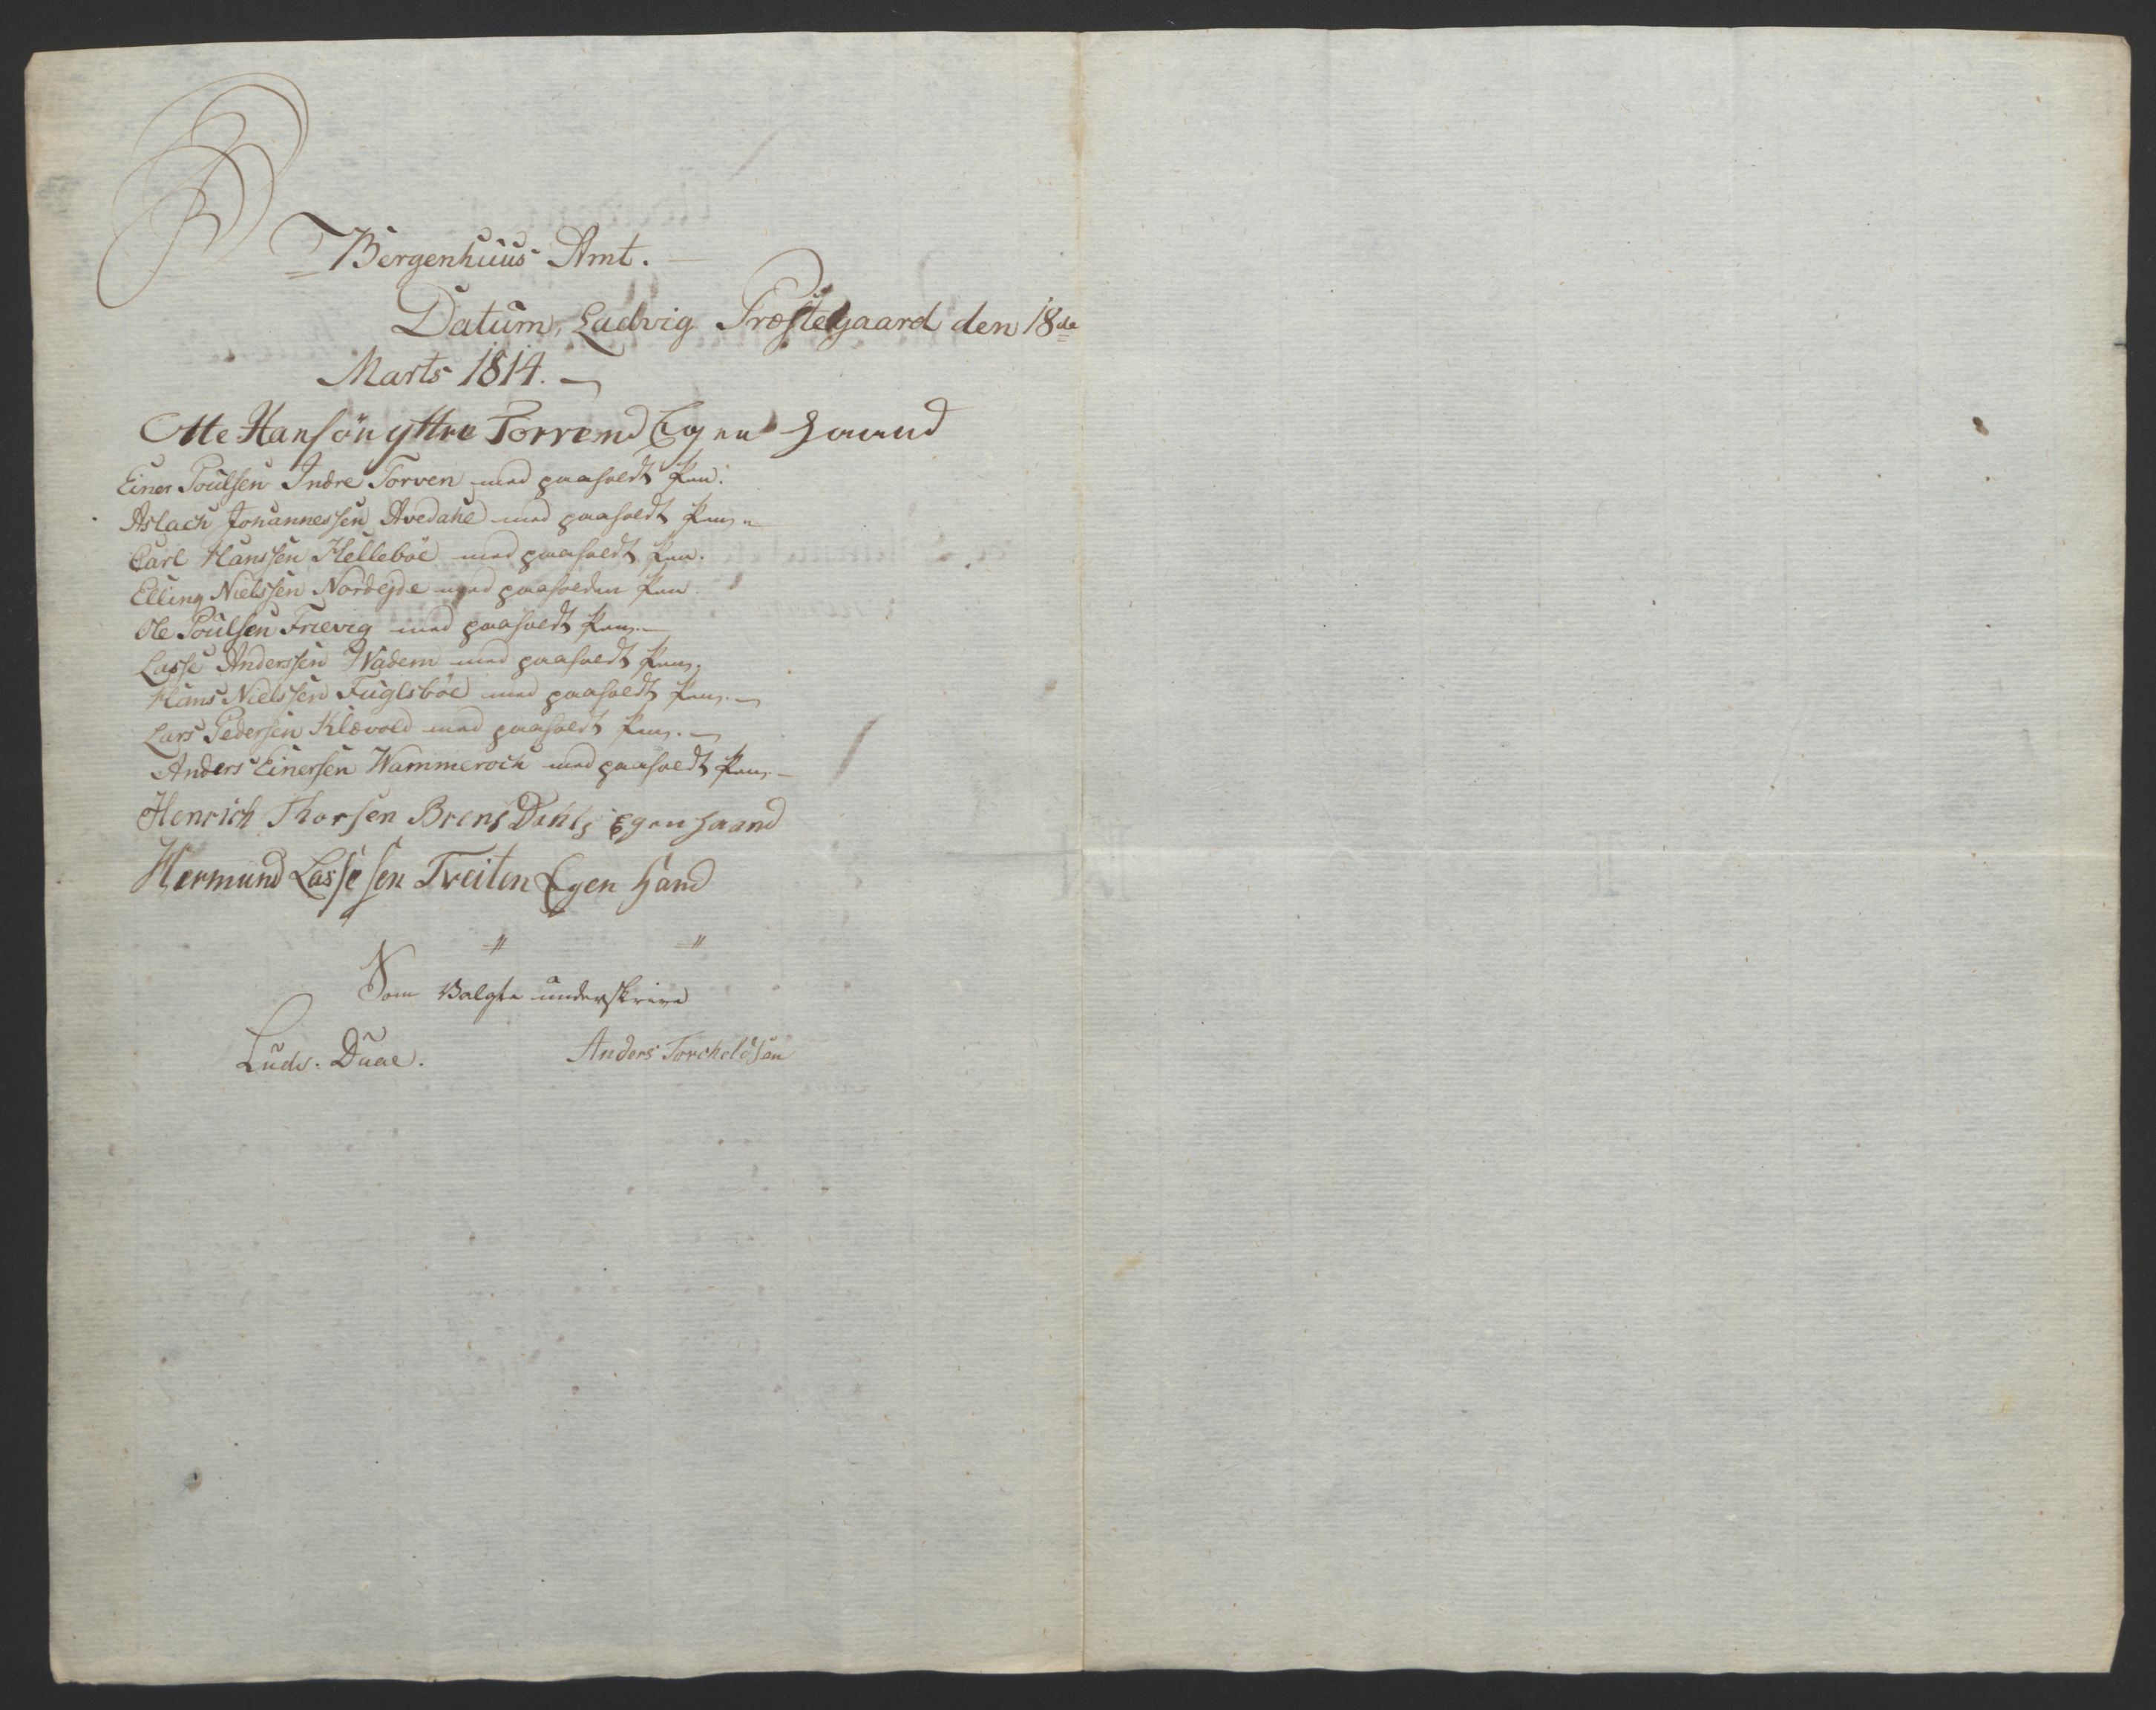 Bergenhuus Amt. —
Datum, Ladvig Præstegaard den 18de
Marts 1814. —
Otte Hansön yttre Torvend Egen Haand
Einer Poulsen Indre Torven med paaholdt Pen.
Aslach Johannessen Avedahl med paaholdt Pen.
Carl Hanssen Helleböe med paaholdt Pen.
Elling Nielssen Nordejde med paaholden Pen
Ole Poulsen Frievig med paaholdt Pen. —
Lasse Anderssen Wadem med paaholdt Pen.
Hans Nielssen Fuglsböe med paaholdt Pen. —
Lars Pedersen Klævold med paaholdt Pen. —
Anders Einersen Wammeroch med paaholdt Pen. —
Henrich Thorsen BrensDahl Egen Haand
Hermund Lassesen Treiten Egen Hand
" "
Som Valgte underskrive
Ludv. Daae. Anders Torcheldsen